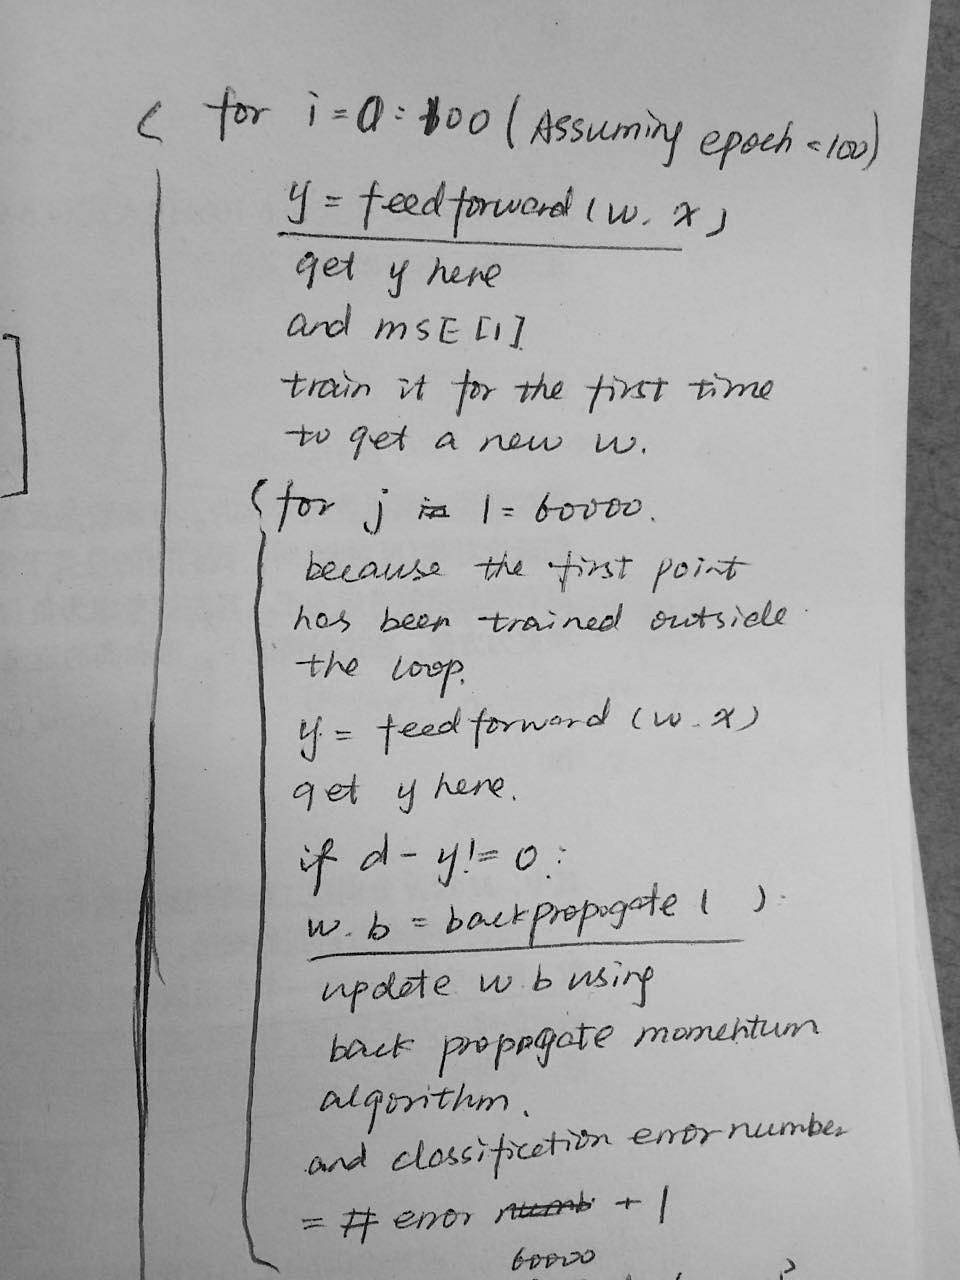 for i=0:100 (Assuming epoch=100)
y = feedforward (w. x)
get y here
and MSE [1]
train it for the first time
to get a new w.
for j = 1=60000.
because the first point
has been trained outside
the loop.
y = feedforward (w. x)
get y here.
if d-y!=0:
w.b = backpropogate ( ).
update w b using
back propogate momentum
algorithm.
and classification error number
= # error + 1
60000